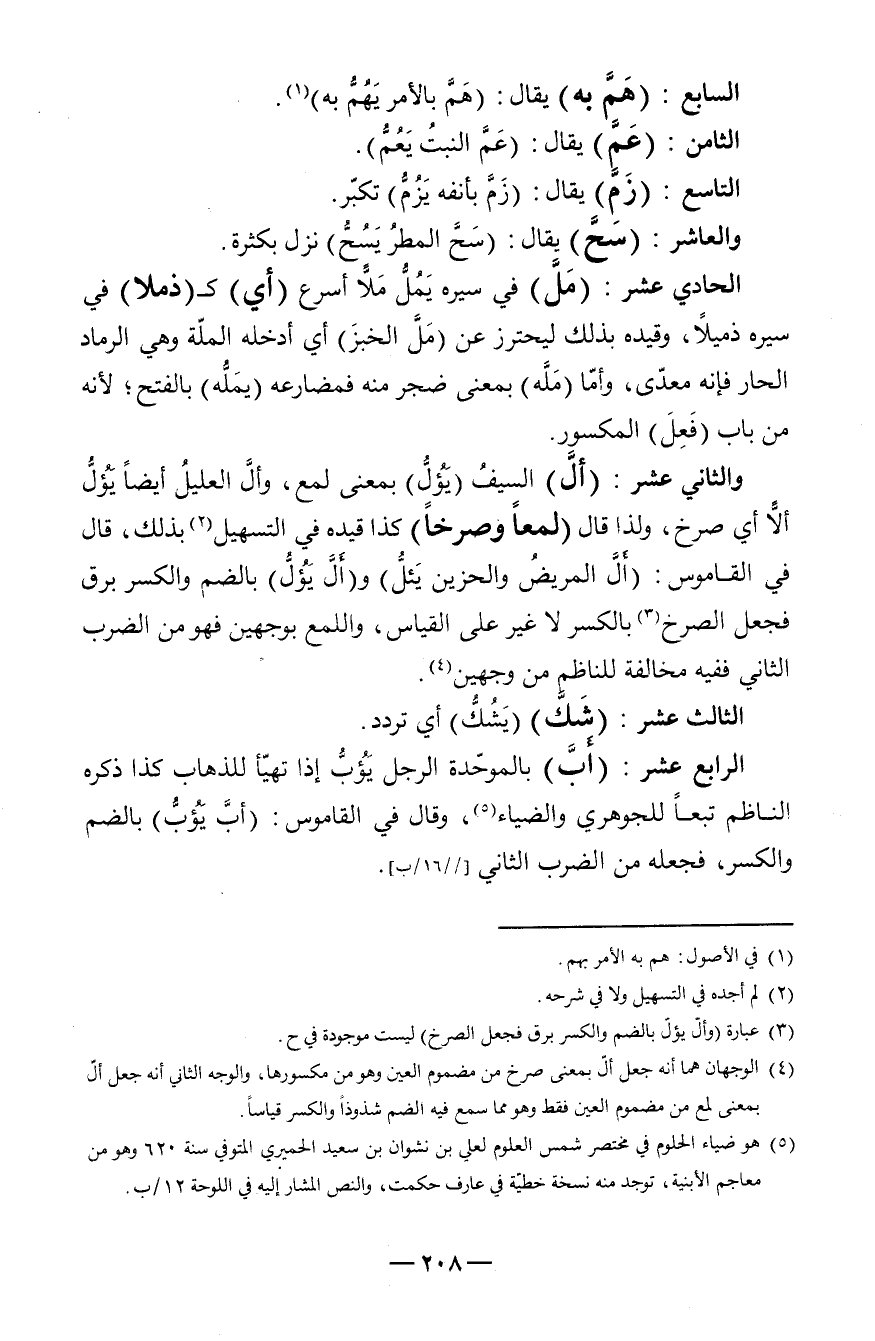 السابع : (هَمَّ به) يقال : (هَمَّ بالأمر يَهُمُّ به)(١).
الثامن : (عَمَّ) يقال : (عَمَّ النبتُ يَعُمُّ).
التاسع : (زَمَّ) يقال : (زَمَّ بأنفه يَزُمُّ) تكبّر.
والعاشر : (سَحَّ) يقال : (سَحَّ المطرُ يَسُحُّ) نزل بكثرة.
الحادي عشر : (مَلَّ) في سيره يَمُلُّ مَلًّا أسرع (أي) كـ(ذملا) في
سيره ذميلًا، وقيده بذلك ليحترز عن (مَلَّ الخبزَ) أي أدخله الملّة وهي الرماد
الحار فإنه معدّى، وأمّا (مَلَّه) بمعنى ضجر منه فمضارعه (يمَلُّه) بالفتح؛ لأنه
من باب (فَعِلَ) المكسور.
والثاني عشر : (ألَّ) السيفُ (يَؤُلُّ) بمعنى لمع، وألَّ العليلُ أيضاً يَؤُلُّ
ألًّا أي صرخ، ولذا قال (لمعاً وصرخاً) كذا قيده في التسهيل(٢) بذلك، قال
في القـاموس : (أَلَّ المريضُ والحزين يَئلُّ) و(أَلَّ يَؤُلُّ) بالضم والكسر برق
فجعل الصرخ(٣) بالكسر لا غير على القياس، واللمع بوجهين فهو من الضرب
الثاني ففيه مخالفة للناظم من وجهين(٤).
الثالث عشر : (شَكَّ) (يَشُكُّ) أي تردد.
الرابع عشر : (أَبَّ) بالموحّدة الرجل يَؤُبُّ إذا تهيّأ للذهاب كذا ذكره
النـاظم تبعـاً للجوهري والضياء(٥)، وقال في القاموس : (أبَّ يَؤُبُّ) بالضم
والكسر، فجعله من الضرب الثاني [//١٦/ب].
(١) في الأصول : هم به الأمر بهم.
(٢) لم أجده في التسهيل ولا في شرحه.
(٣) عبارة (وألّ يؤلّ بالضم والكسر برق فجعل الصرخ) ليست موجودة في ح.
(٤) الوجهان هما أنه جعل ألّ بمعنى صرخ من مضموم العين وهو من مكسورها، والوجه الثاني أنه جعل ألّ
بمعنى لمع من مضموم العين فقط وهو مما سمع فيه الضم شذوذاً والكسر قياساً.
(٥) هو ضياء الحلوم في مختصر شمس العلوم لعلي بن نشوان بن سعيد الحميري المتوفي سنة ٦٢٠ وهو من
معاجم الأبنية، توجد منه نسخة خطيّة في عارف حكمت، والنص المشار إليه في اللوحة ١٢/ب.
— ٢٠٨ —